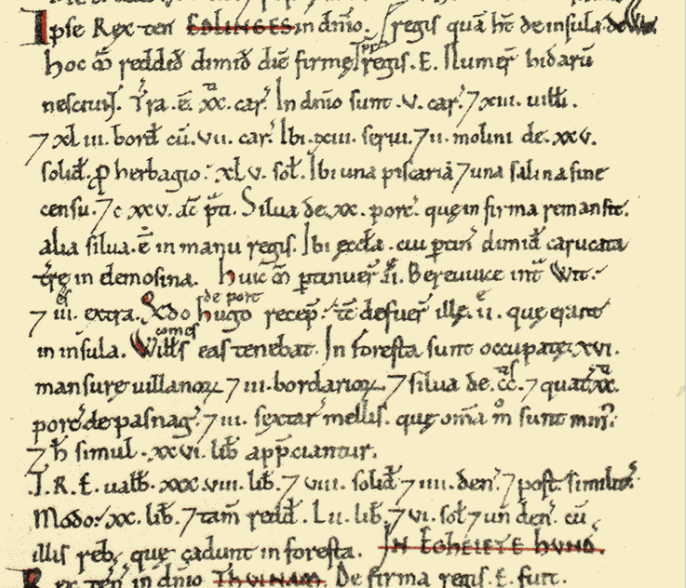 Ipse Rex ten̄ EDLINGES. in dn̄io. regis quā ht̄ de insula de
hoc m̄ reddid̄ dimid̄ diē firmę regis. E. Numer̄ hidarū
nesciunt̄. Tr̄a. ē. xx. car̄. In dn̄io sunt. v. car̄. ⁊ xiii. uilli.
⁊ xliii. bord̄ cū. vii. car̄. Ibi. xiii. serui. ⁊ ii. molini de. xxv.
solid̄. ꝑ herbagio: xlv. sol̄. Ibi una piscaria ⁊ una salina sine
censu. ⁊ c xxv. ac̄ p̄ti. Silua de. xx. porc̄. que in firma remansit.
alia silua. ē in manu regis. Ibi ęccła. cui ꝑtin̄ dimid̄ carucata
trę in elemosina. huic m̄ ꝑtinuer̄ Bereuuice int̄ Wit.
⁊ iii. extra. Qdo hugo de port recep̄. tc̄ defuer̄ illę. ii. quę erant
in insula. Wills comes eas tenebat. In foresta sunt occupatę. xvi.
mansure uillanoꝝ ⁊ iii. bordarioꝝ ⁊ silua de. cc. ⁊ quat xx.
porc̄ de pasnag̃. ⁊ iii. sextar̄ mellis. quę om̄a m° sunt min⁹.
⁊ h̄ simul. xxvi. lib̄ app̄ciantur.
T. R. E. ualb̄. xxxviii. lib̄. ⁊ viii. solid̄ ⁊ iiii. den̄. ⁊ post. similit̄.
Modo: xx. lib̄. ⁊ tam̄ redd̄. Lii. lib̄. ⁊ vi. sol̄ ⁊ un̄ den̄. cū
illis reb⁹ quę cadunt in foresta. IN EGHEIETE HUND.
Rex ten̄ in dn̄io THUINAM. De firma regis. E. fuit.